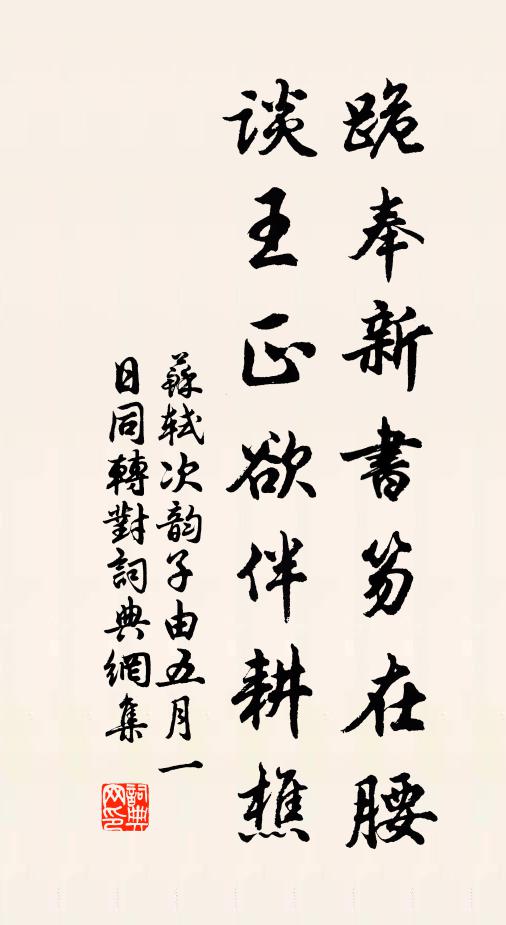 跪奉新書笏在腰
談王正欲伴耕樵
蘇軾次韵子由五月一
日同轉對詞典網集
詞典
网印